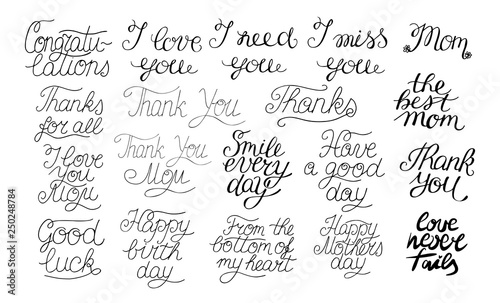 Congratu-
lations
I love
you
I need
you
I miss
you
Mom
Thanks
for all
Thank You
Thanks
the
best
mom
I love
you
Mom
Thank You
Mom
Smile
every
day
Have
a good
day
Thank
you
Good
luck
Happy
birth
day
From the
bottom of
my heart
Happy
Mothers
day
love
never
fails
Adobe Stock | #250248784